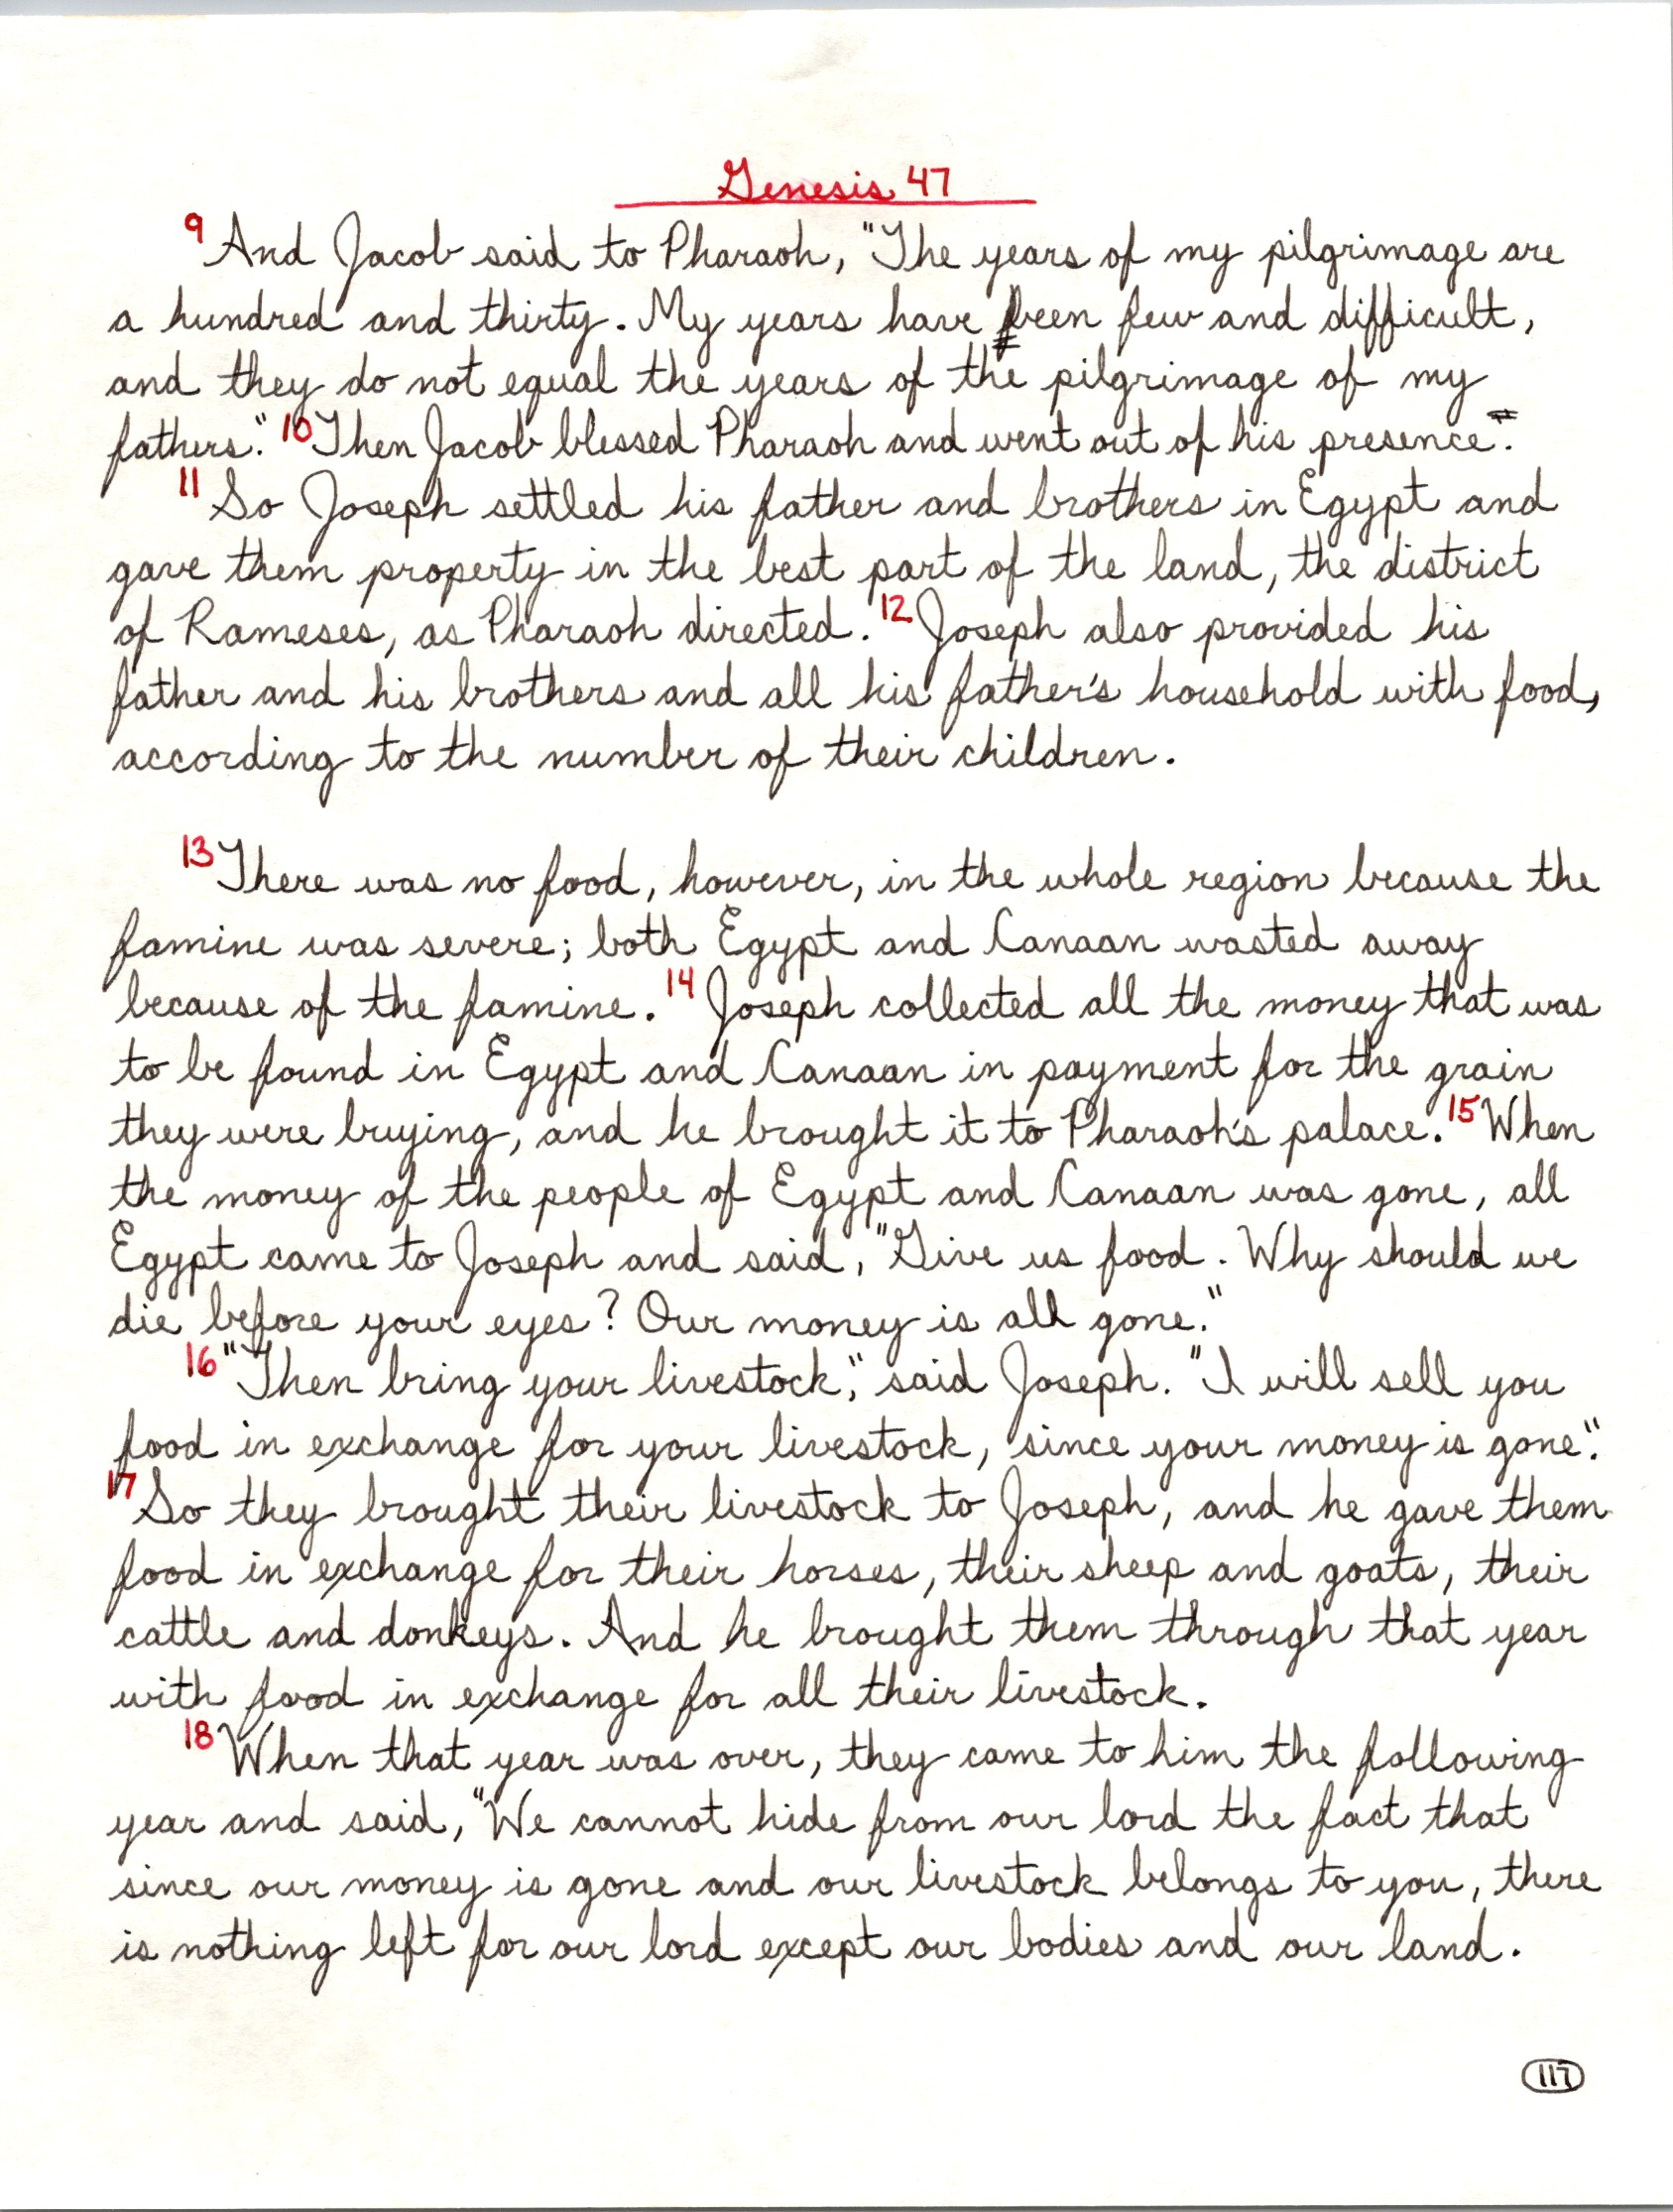 Genesis 47
9 And Jacob said to Pharaoh, "The years of my pilgrimage are
a hundred and thirty. My years have been few and difficult,
and they do not equal the years of the pilgrimage of my
fathers." 10 Then Jacob blessed Pharaoh and went out of his presence.
11 So Joseph settled his father and brothers in Egypt and
gave them property in the best part of the land, the district
of Rameses, as Pharaoh directed. 12 Joseph also provided his
father and his brothers and all his father's household with food,
according to the number of their children.
13 There was no food, however, in the whole region because the
famine was severe; both Egypt and Canaan wasted away
because of the famine. 14 Joseph collected all the money that was
to be found in Egypt and Canaan in payment for the grain
they were buying, and he brought it to Pharaoh's palace. 15 When
the money of the people of Egypt and Canaan was gone, all
Egypt came to Joseph and said, "Give us food. Why should we
die before your eyes? Our money is all gone."
16 "Then bring your livestock," said Joseph. "I will sell you
food in exchange for your livestock, since your money is gone."
17 So they brought their livestock to Joseph, and he gave them
food in exchange for their horses, their sheep and goats, their
cattle and donkeys. And he brought them through that year
with food in exchange for all their livestock.
18 When that year was over, they came to him the following
year and said, "We cannot hide from our lord the fact that
since our money is gone and our livestock belongs to you, there
is nothing left for our lord except our bodies and our land.
117